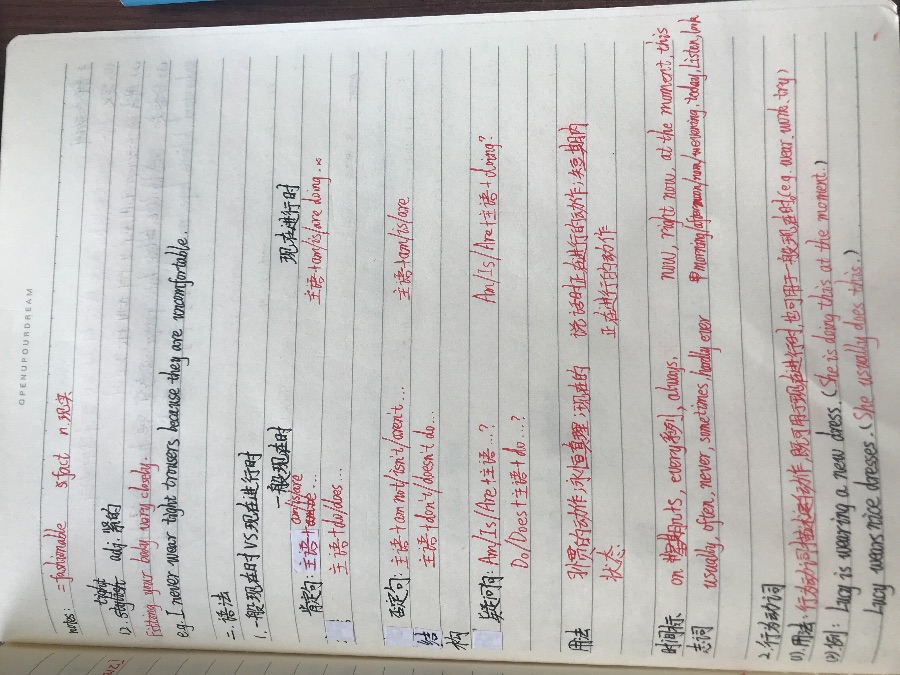 OPENUPOURDREAM
notes: = fashionable 5 fact n. 现实
tight
D. adj. 紧的
Fitting your body very closely.
eg. I never wear tight trousers because they are uncomfortable.
二. 语法
1. 一般现在时 VS 现在进行时
一般现在时 现在进行时
am/is/are
肯定句: 主语+ ... 主语+am/is/are doing...
主语+do/does...
否定句: 主语+am not/isn't/aren't... 主语+am/is/are
结 主语+don't/doesn't do...
构
疑问句: Am/Is/Are+主语...? Am/Is/Are+主语+doing?
Do/Does+主语+do...?
用法 习惯的动作;永恒真理;现在的 说话时正在进行的动作;短期内
状态. 正在进行的动作
时间标 on 星期nts, every时刻, always, now, right now, at the moment, this
志词 usually, often, never, sometimes, hardly ever morning/afternoon/noon/evening, today, Listen, look
2. 行为动词
(1). 用法: 行为动词描述动作 既可用于现在进行时,也可用于一般现在时(e.g. wear. work. try)
(2) 例: Lucy is wearing a new dress. (She is doing this at the moment.)
Lucy wears nice dresses. (She usually does this.)